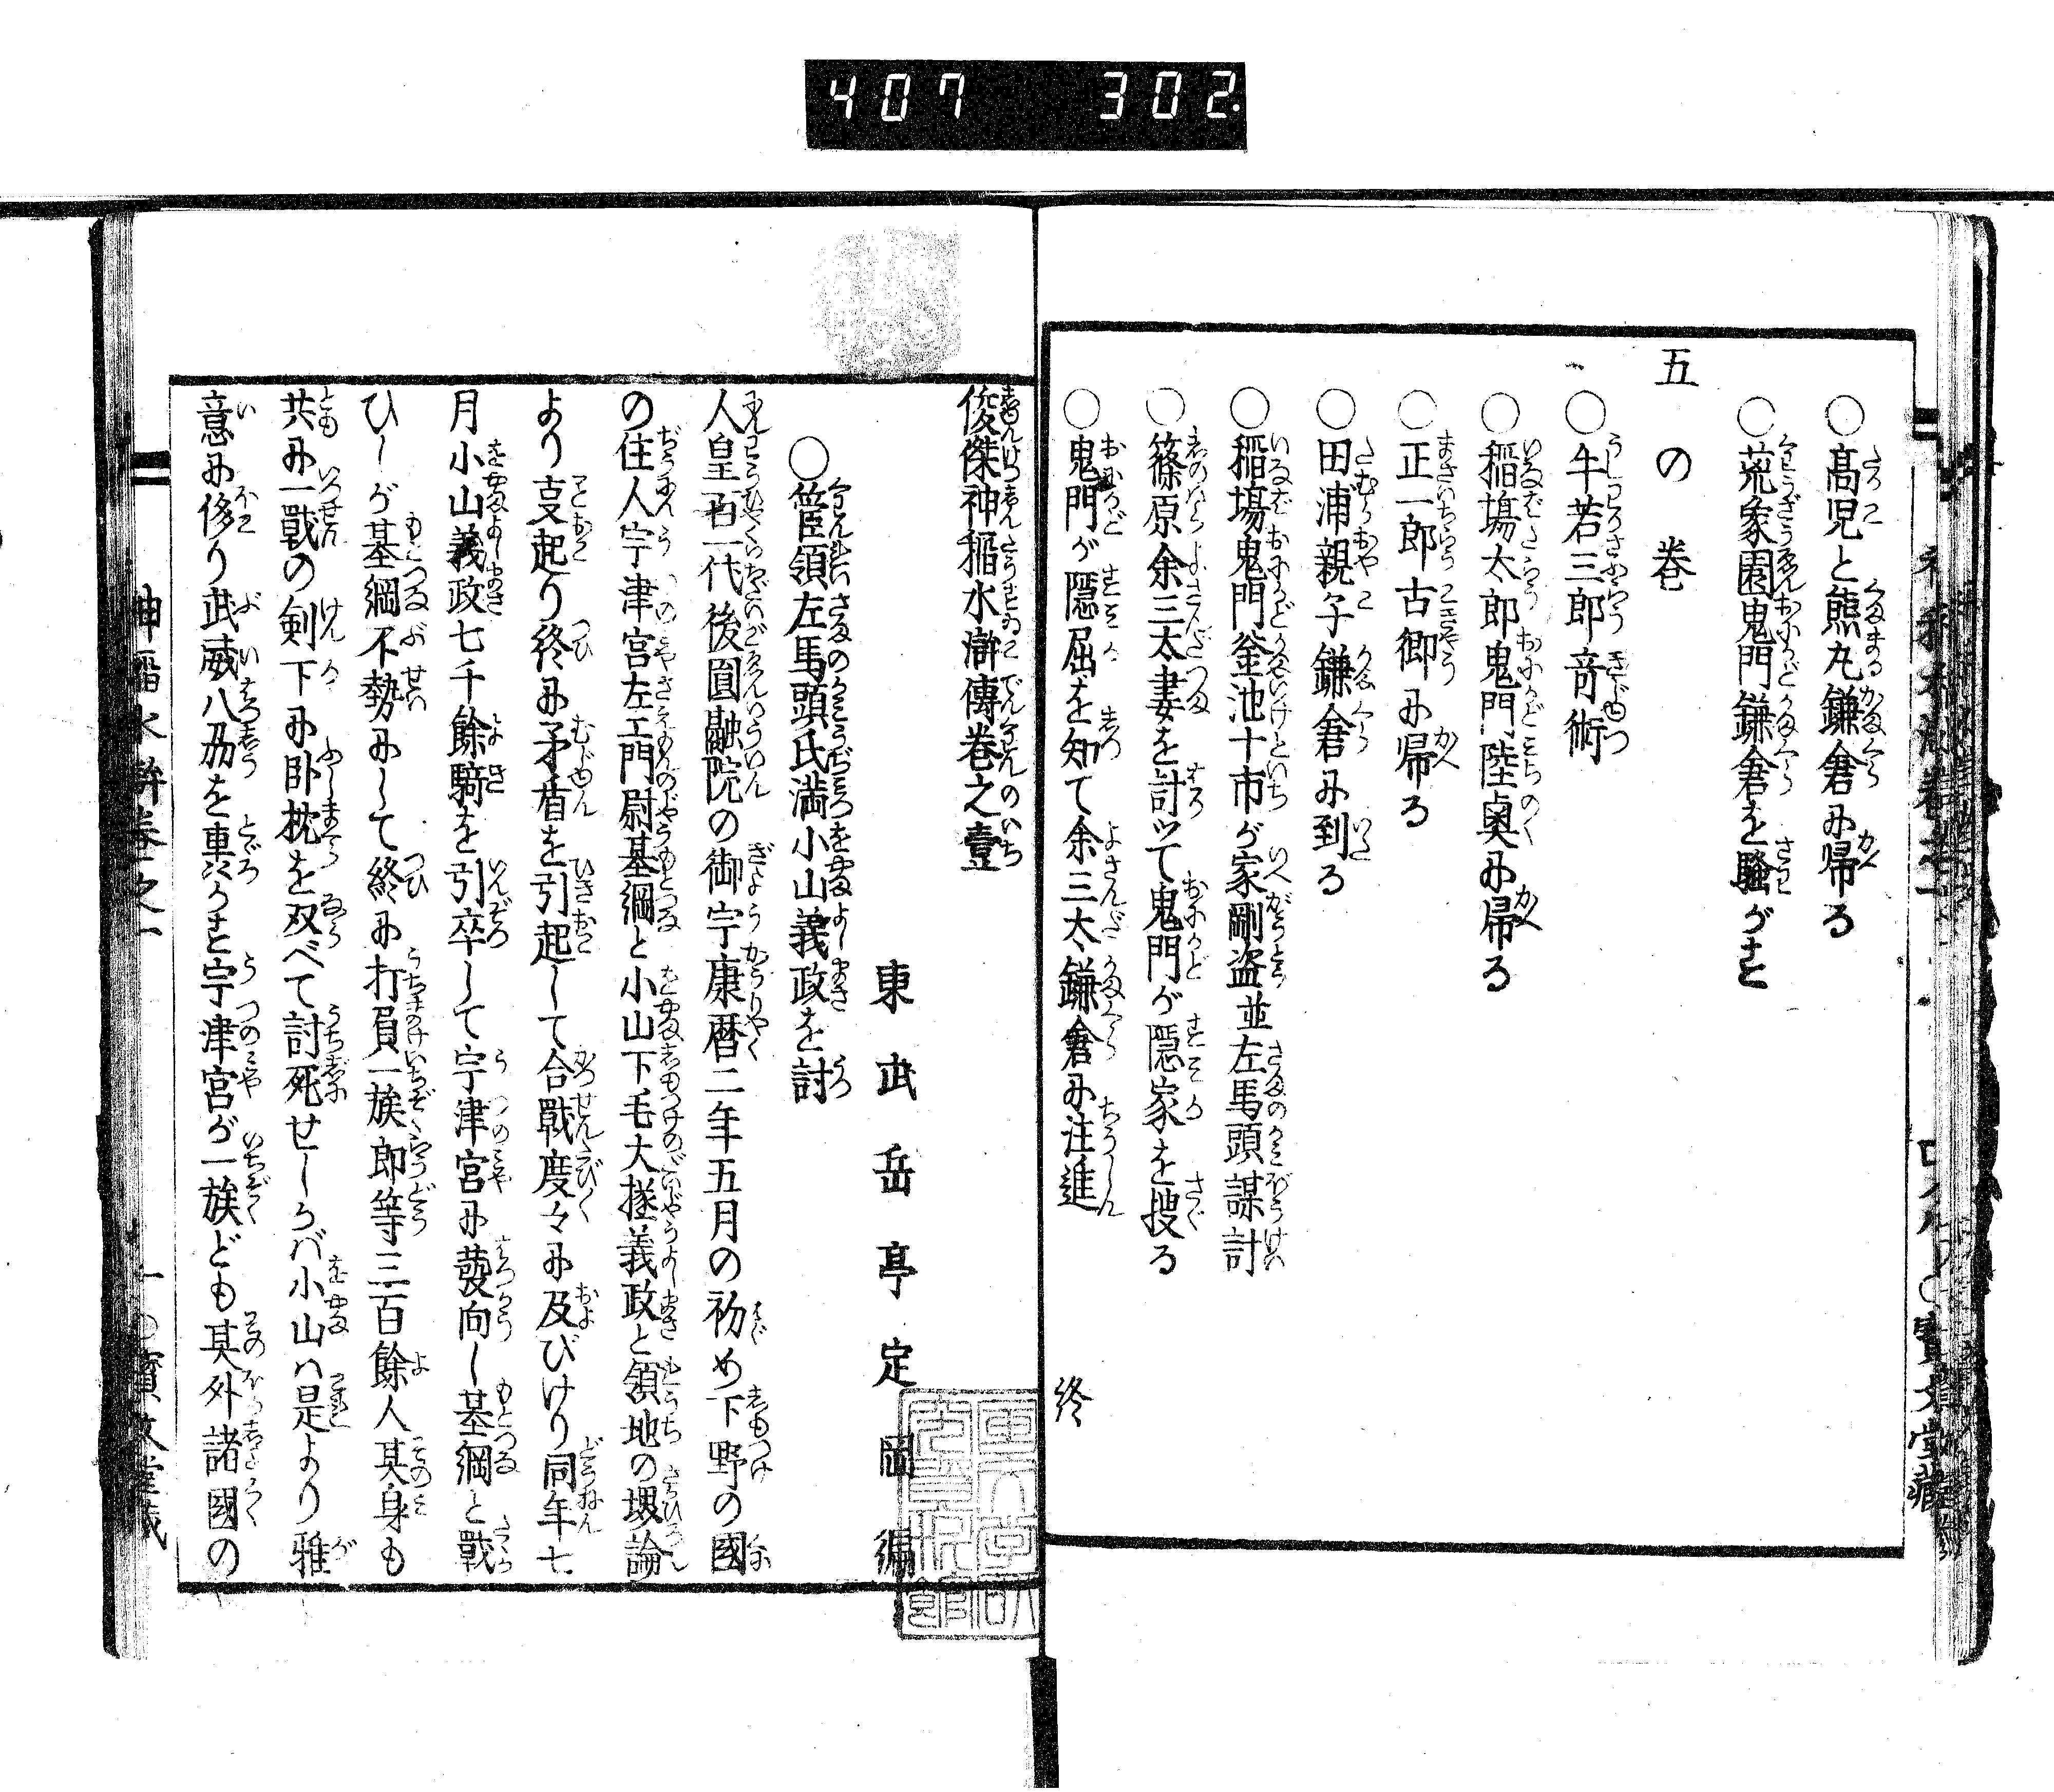 407 302.
○髙児と熊丸鎌倉に帰る
○荒象園鬼門鎌倉を騒がす
五の巻
○牛若三郎竒術
○稲塲太郎鬼門陸奥に帰る
○正一郎古郷に帰る
○田浦親子鎌倉に到る
○稲塲鬼門釜池十市が家剛盗並左馬頭謀計
○篠原余三太妻を討ッて鬼門が隠家を捜る
○鬼門が隠屈を知て余三太鎌倉に注進
終
俊傑神稲水滸傳巻之壹
東武岳亭定岡編
○管領左馬頭氏満小山義政を討
人皇百一代後圓融院の御宇康暦二年五月の初め下野の國
の住人宇津宮左エ門尉基綱と小山下毛大掾義政と領地の堺論
より叓起り終に矛盾を引起して合戰度々に及びけり同年七
月小山義政七千餘騎を引卒して宇津宮に發向し基綱と戰
ひしが基綱不勢にして終に打負一族郎等三百餘人其身も
共に一戰の剣下に卧枕を双べて討死せしかバ小山ハ是より雅
意に侈り武威八荔を轟かすと宇津宮が一族ども其外諸國の
神稲水滸巻之一 一 ○寳文堂藏